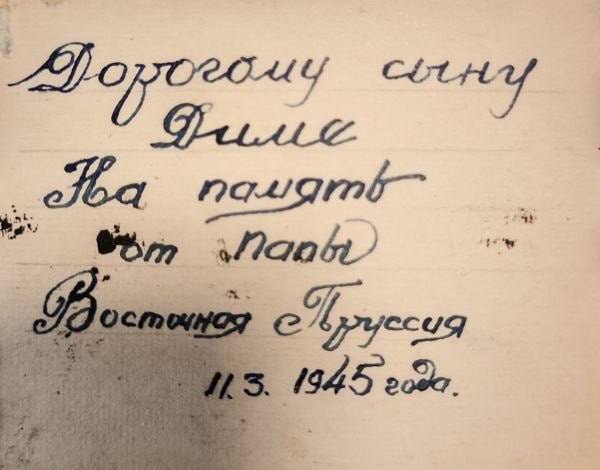 Дорогому сыну
Диме
На память
от папы
Восточная Пруссия
11.3. 1945 года.